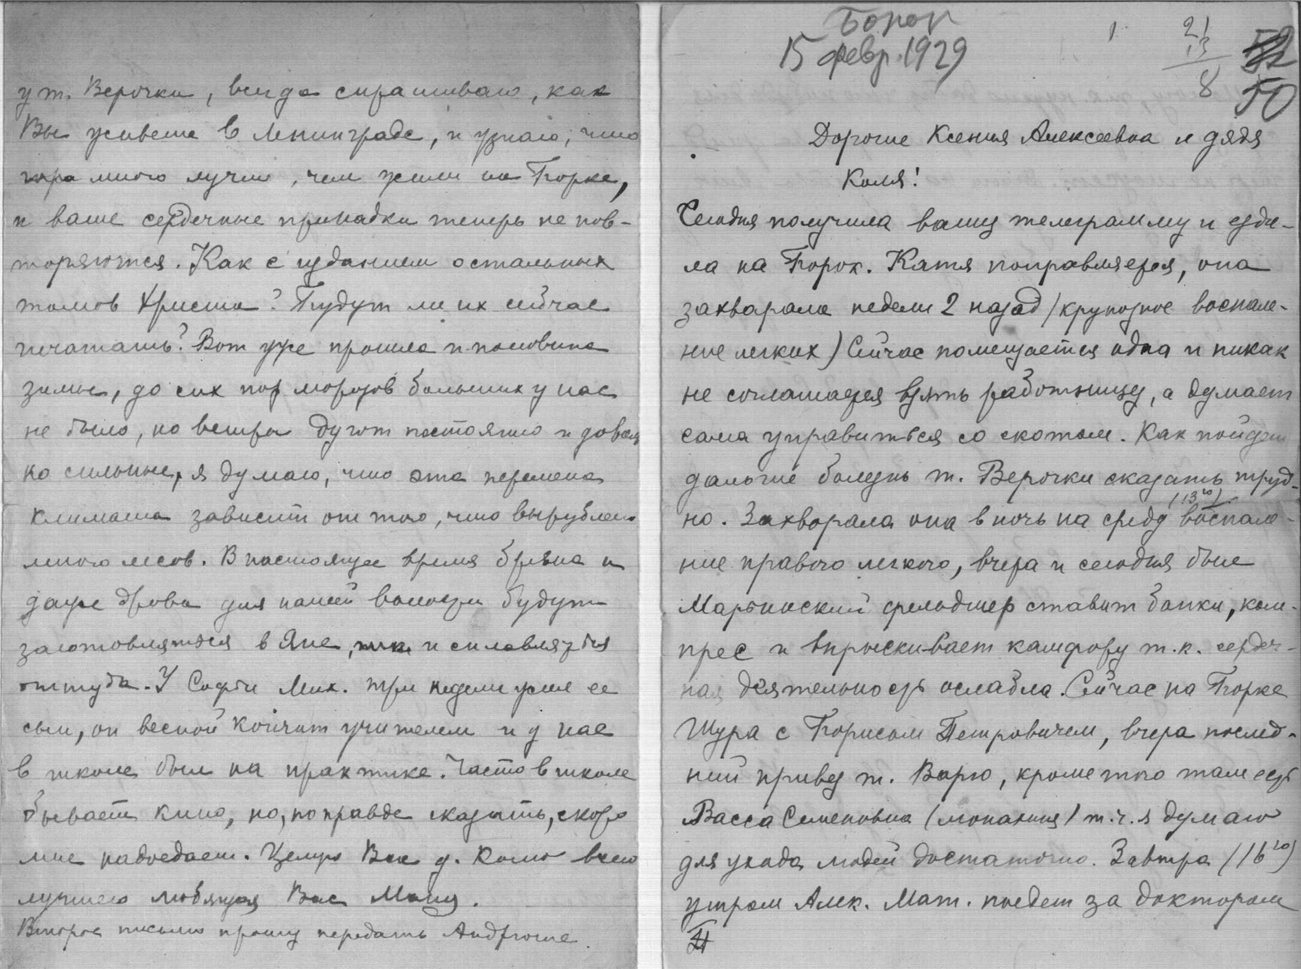 у т. Верочки, всегда спрашиваю, как
Вы живете в Ленинграде, и узнаю, что
много лучше, чем жили на Борке,
и ваше сердечные припадки теперь не пов-
торяются. Как с изданием остальных
томов Христа? Будут ли их сейчас
печатать? Вот уже прошла и половина
зимы, до сих пор морозов больших у нас
не было, но ветры дуют постоянно и доволь
но сильные, я думаю, что эта перемена
климата зависит от того, что вырублено
много лесов. В настоящее время бревна и
даже дрова для нашей волости будут
заготовляться в Яне, и сплавляться
оттуда. У Софьи Мих. три недели жил ее
сын, он весной кончит учителем и у нас
в школе был на практике. Часто в школе
бывает кино, но, по правде сказать, скоро
мне надоедает. Целую Вас д. Колю всего
лучшего любящая Вас Маня.
Второе письмо прошу передать Андрюше.
Борок
15 февр. 1929
1
21
13
8
52
50
Дорогие Ксения Алексеевна и дядя
Коля!
Сегодня получила вашу телеграмму и езди-
ла на Борок. Катя поправляется, она
захварала недели 2 назад (крупозное воспале-
ние легких) Сейчас помещается одна и никак
не соглашается взять работницу, а думает
сама управиться со скотом. Как пойдет
дальше болезнь т. Верочки сказать труд-
но. Захварала она в ночь на среду (13го) воспале-
ние правого легкого, вчера и сегодня был
Марьинский фельдшер ставит банки, ком-
прес и впрыскивает камфору т.к. сердеч-
ная деятельность ослабла. Сейчас на Борке
Шура с Борисом Петровичем, вчера послед-
ний привез т. Варю, кроме того там есть
Васса Семеновна (монахиня) т.ч. я думаю
для ухода людей достаточно. Завтра (16го)
утром Алек. Мат. поедет за доктором